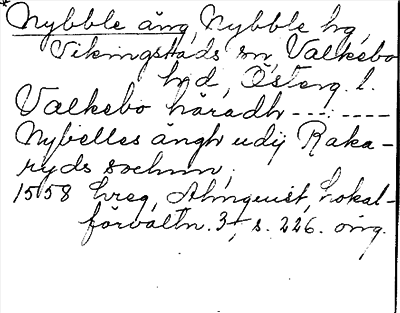 Nybble äng, Nybble hg,
Vikingstads sn, Valkebo
hd, Österg. l.
Valkebo häradh -------
Nybelles ängh udij Raka-
ryds sochnn,
1558 hreg, Almquist, Lokal-
förvaltn. 3, s. 226. orig.